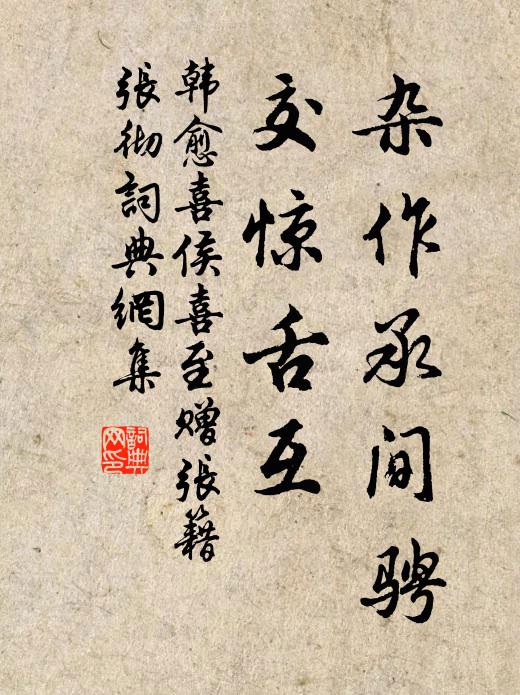 杂作承间骋
交惊舌互
韩愈喜侯喜至赠张籍
張彻詞典網集
詞典网印